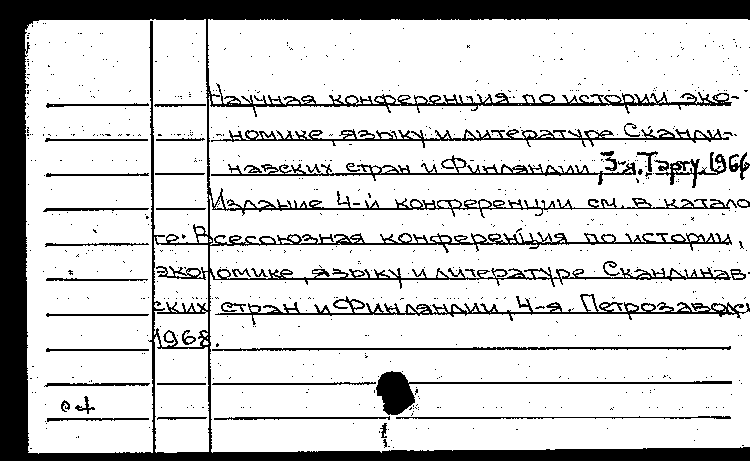 Научная конференция по истории, эко-
номике, языку и литературе Сканди-
навских стран и Финляндии, 3-я. Тарту, 1966
Издание 4-й конференции см. в катало
ге: Всесоюзная конференция по истории,
экономике, языку и литературе Скандинав-
ских стран и Финляндии, 4-я. Петрозаводск
1968.